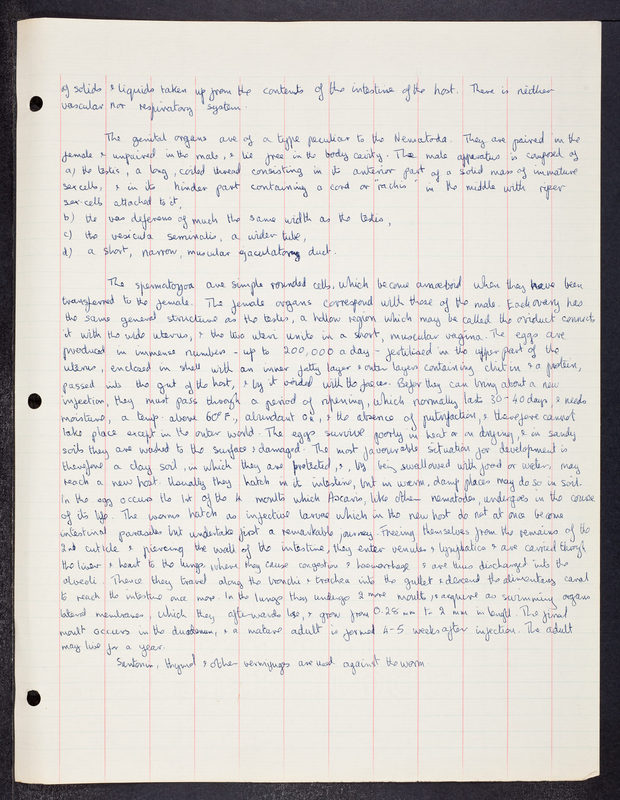 of solids & liquids taken up from the contents of the intestine of the host. There is neither
vascular nor respiratory system.
The genital organs are of a type peculiar to the Nematoda. They are paired in the
female & unpaired in the male, & lie free in the body cavity. The male apparatus is composed of
a) the testis, a long, coiled thread consisting in its anterior part of a solid mass of immature
sex cells, & in its hinder part containing a cord or "rachis" in the middle with riper
sex-cells attached to it,
b) the vas deferens of much the same width as the testes,
c) the vesicula seminalis, a wider tube,
d) a short, narrow, muscular ejaculatory duct.
The spermatozoa are simple rounded cells, which become amœboid when they have been
transferred to the female. The female organs correspond with those of the male. Each ovary has
the same general structure as the testes, a hollow region which may be called the oviduct connects
it with the wide uterus, & the two uteri unite in a short, muscular vagina. The eggs are
produced in immense numbers - up to 200,000 a day - fertilised in the upper part of the
uterus, enclosed in shell with an inner fatty layer & outer layers containing chitin & a protein,
passed into the gut of the host, & by it voided with the faeces. Before they can bring about a new
infection, they must pass through a period of ripening, which normally lasts 30-40 days, & needs
moisture, a temp. above 60°F, abundant O₂, & the absence of putrefaction, & therefore cannot
take place except in the outer world. The eggs survive poorly in heat or in drying, & in sandy
soils they are washed to the surface & damaged. The most favourable situation for development is
therefore a clay soil, in which they are protected, &, by being swallowed with food or water, may
reach a new host. Usually they hatch in it intestine, but in warm, damp places may do so in soil.
In the egg occurs the 1st of the 4 moults which Ascaris, like other nematodes, undergoes in the course
of its life. The worms hatch as infective larvae which in the new host do not at once become
intestinal parasites but undertake first a remarkable journey. Freeing themselves from the remains of the
2nd cuticle & piercing the wall of the intestine, they enter venules & lymphatics & are carried through
the liver & heart to the lungs, where they cause congestion & haemorrhage & are thus discharged into the
alveoli. Thence they travel along the bronchi & trachea into the gullet & descend the alimentary canal
to reach the intestine once more. In the lungs they undergo 2 more moults, & acquire as swimming organs
lateral membranes, which they afterwards lose, & grow from 0.28 mm to 2 mm in length. The final
moult occurs in the duodenum, & a mature adult is formed 4-5 weeks after infection. The adult
may live for a year.
Santonin, thymol & other vermifuges are used against the worm